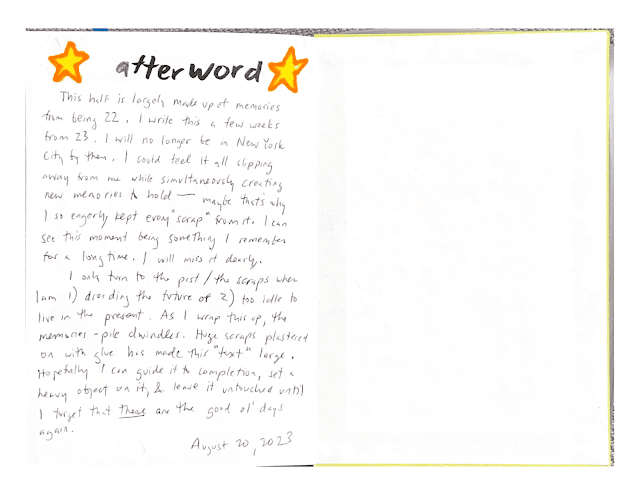 afterword
This half is largely made up of memories
from being 22. I write this a few weeks
from 23. I will no longer be in New York
City by then. I could feel it all slipping
away from me while simultaneously creating
new memories to hold — maybe that's why
I so eagerly kept every "scrap" from it. I can
see this moment being something I remember
for a long time. I will miss it dearly.
I only turn to the past / the scraps when
I am 1) dreading the future or 2) too idle to
live in the present. As I wrap this up, the
memories-pile dwindles. Huge scraps plastered
on with glue has made this "text" large.
Hopefully I can guide it to completion, set a
heavy object on it, & leave it untouched until
I forget that these are the good ol' days
again.
August 20, 2023